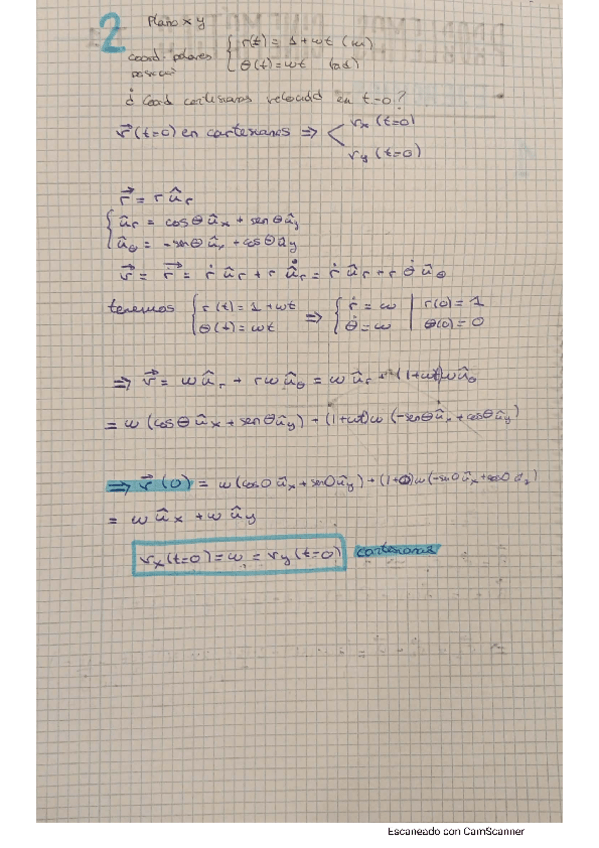 2 Plano x y
coord. polares posición { r(t) = 1 + wt (m)
θ(t) = wt (rad)
¿ Coord cartesianas velocidad en t=0?
v⃗ (t=0) en cartesianas ⇒ < vx (t=0)
vy (t=0)
r⃗ = r ûr
{ ûr = cosθ ûx + senθ ûy
ûθ = -senθ ûx + cosθ ûy
v⃗ = r⃗̇ = ṙ ûr + r û̇r = ṙ ûr + r θ̇ ûθ
tenemos { r(t) = 1 + wt ⇒ { ṙ = w | r(0) = 1
θ(t) = wt θ̇ = w | θ(0) = 0
⇒ v⃗ = w ûr + r w ûθ = w ûr + (1+wt)w ûθ
= w (cosθ ûx + senθ ûy) + (1+wt)w (-senθ ûx + cosθ ûy)
⇒ v⃗ (0) = w (cos0 ûx + sen0 ûy) + (1+0)w (-sen0 ûx + cos0 ûy)
= w ûx + w ûy
vx (t=0) = w = vy (t=0) cartesianas
Escaneado con CamScanner